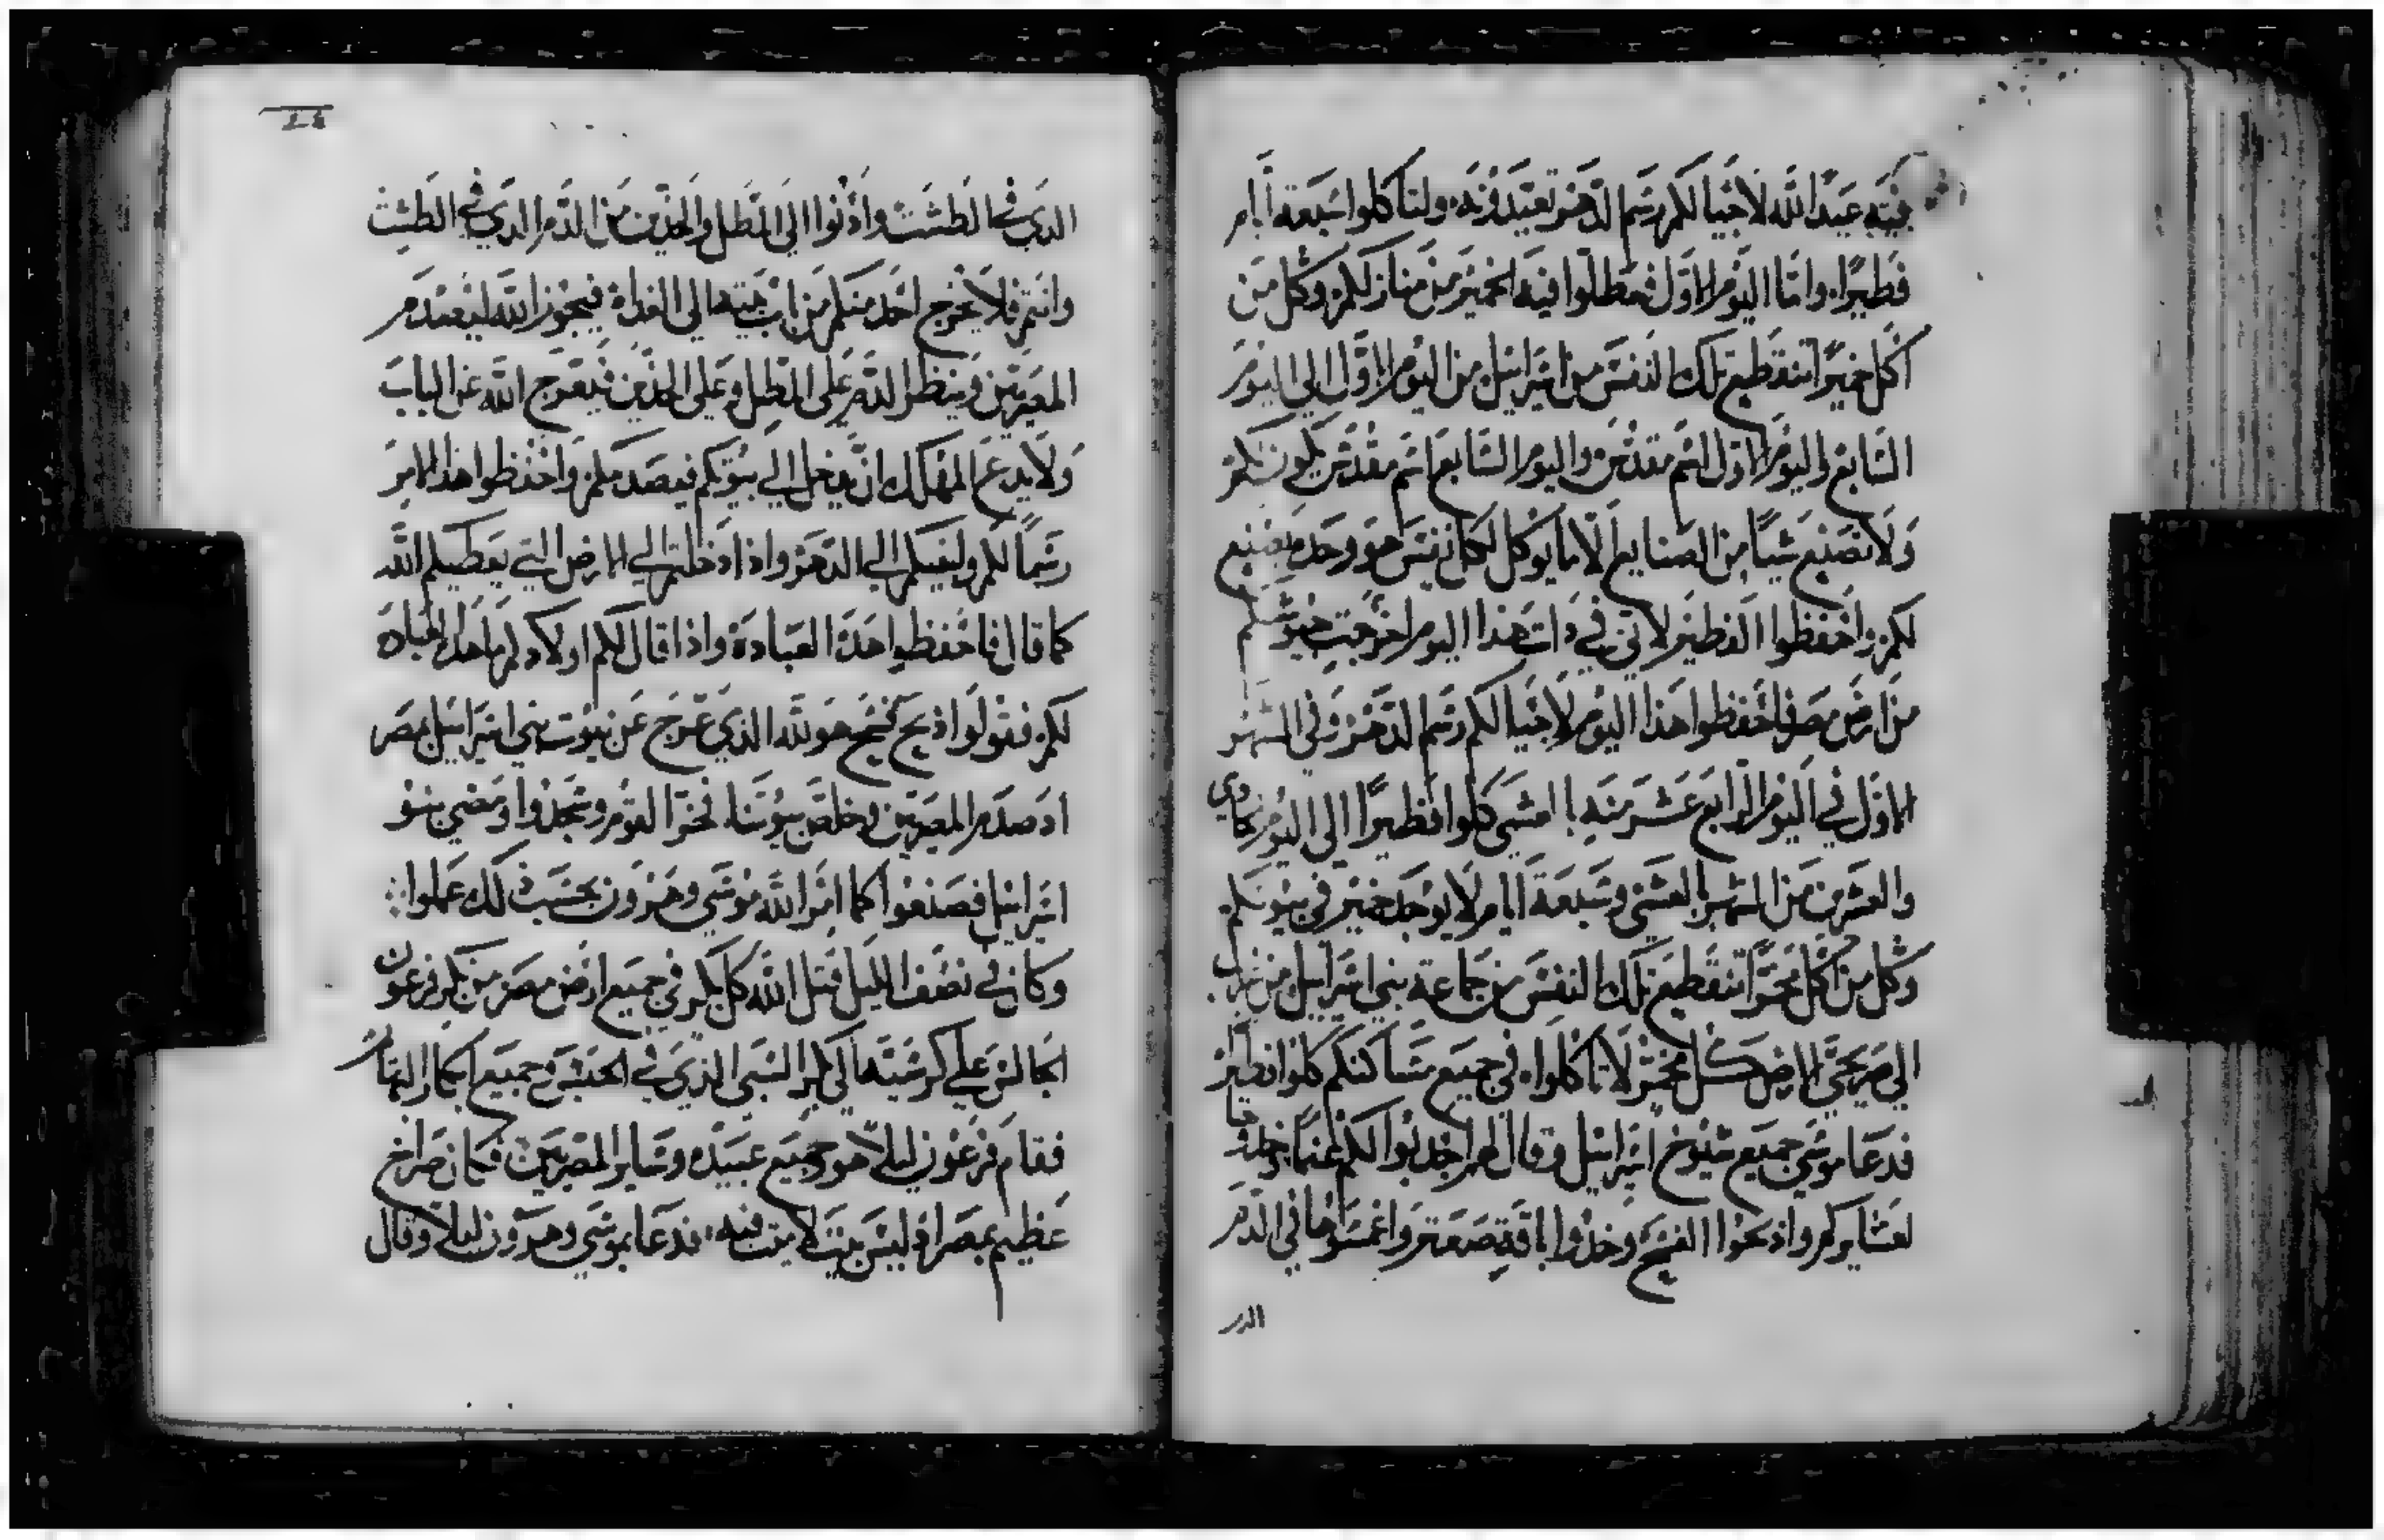 فيه عيد الله لاجيالكم رسم الدهر تعيدونه ولتاكلوا سبعة ايام
فطيرا واما اليوم الاول فعطلوا فيه الخمير من منازلكم وكل من
اكل خميرا تنقطع تلك النفس من اسرائيل من اليوم الاول الى اليوم
السابع واليوم الاول اسم مقدس واليوم السابع اسم مقدس يكون لكم
ولا تصنع شيا من الصنايع الا ما يوكل لكل نفس هو وحده يصنع
لكم واحفظوا الفطير لانني في ذات هذا اليوم اخرجت جيوشكم
من ارض مصر فاحفظوا هذا اليوم لاجيالكم رسم الدهر وفي الشهر
الاول في اليوم الرابع عشر منه بالعشي كلوا فطيرا الى اليوم الحادي
والعشرين من الشهر بالعشي وسبعة ايام لا يوجد خمير في بيوتكم
وكل من اكل مخمرا تنقطع تلك النفس من جماعة بني اسرائيل من
الي صريحي الارض كل مخمر لا تاكلوه في جميع مساكنكم كلوا فطيرا
فدعا موسي جميع شيوخ اسرائيل وقال لهم اجدبوا لكم غنما وخدوا
لعشايركم واذبحوا الفسح وخذوا باقة صعتر واغمسوها في الدم
الدي
الدي في الطشت وادنوا الى المطل والخدين من الدم الدي في الطشت
وانتم فلا يخرج احد منكم من باب بيته الى الغداة فيجوز الله ليصدم
المصريين وينظر الدم على المطل وعلى الخدين فيعرج الله عن الباب
ولا يدع المهلك ان يدخل الي بيوتكم فيصدمكم واحفظوا هذا الامر
رسما لكم ولبنيكم الى الدهر واذا دخلتم الي الارض التي يعطيكم الله
كما قال فاحفظوا هذه العبادة واذا قال لكم اولادكم ما هذه العبادة
لكم فقولوا ذبيح فسح هو لله الذي عرج عن بيوت بني اسرائيل بمصر
اد صدم المصريين وخلص بيوتنا فخر القوم وسجدوا ومضي بنو
اسرائيل فصنعوا كما امر الله موسي وهرون بحسب ذلك عملوا
وكان في نصف الليل قتل الله كل بكر في جميع ارض مصر من بكر فرعون
الجالس علي كرسيه الى بكر السبي الذي في الحبس وجميع ابكار البهايم
فقام فرعون ليلا هو وجميع عبيده وساير المصريين فكان صراخ
عظيم بمصر اذ ليس بيت لا ميت فيه فدعا بموسي وهرون ليلا وقال